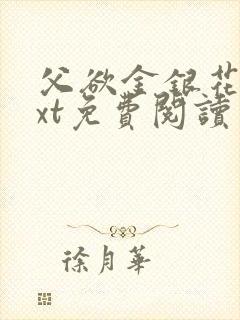 父欲金銀花
xt免費閱讀
徐月華